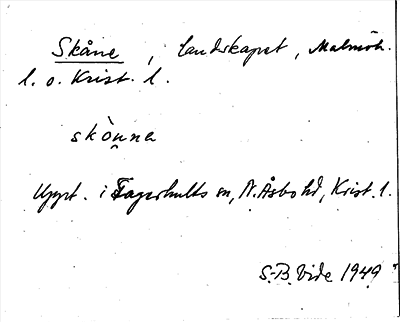 Skåne, landskapet, Malmöh.
l. o. Krist. l.
skò̯nna
Uppt. i Fagerhults sn, N. Åsbo hd, Krist. l.
S.-B. Vide 1949